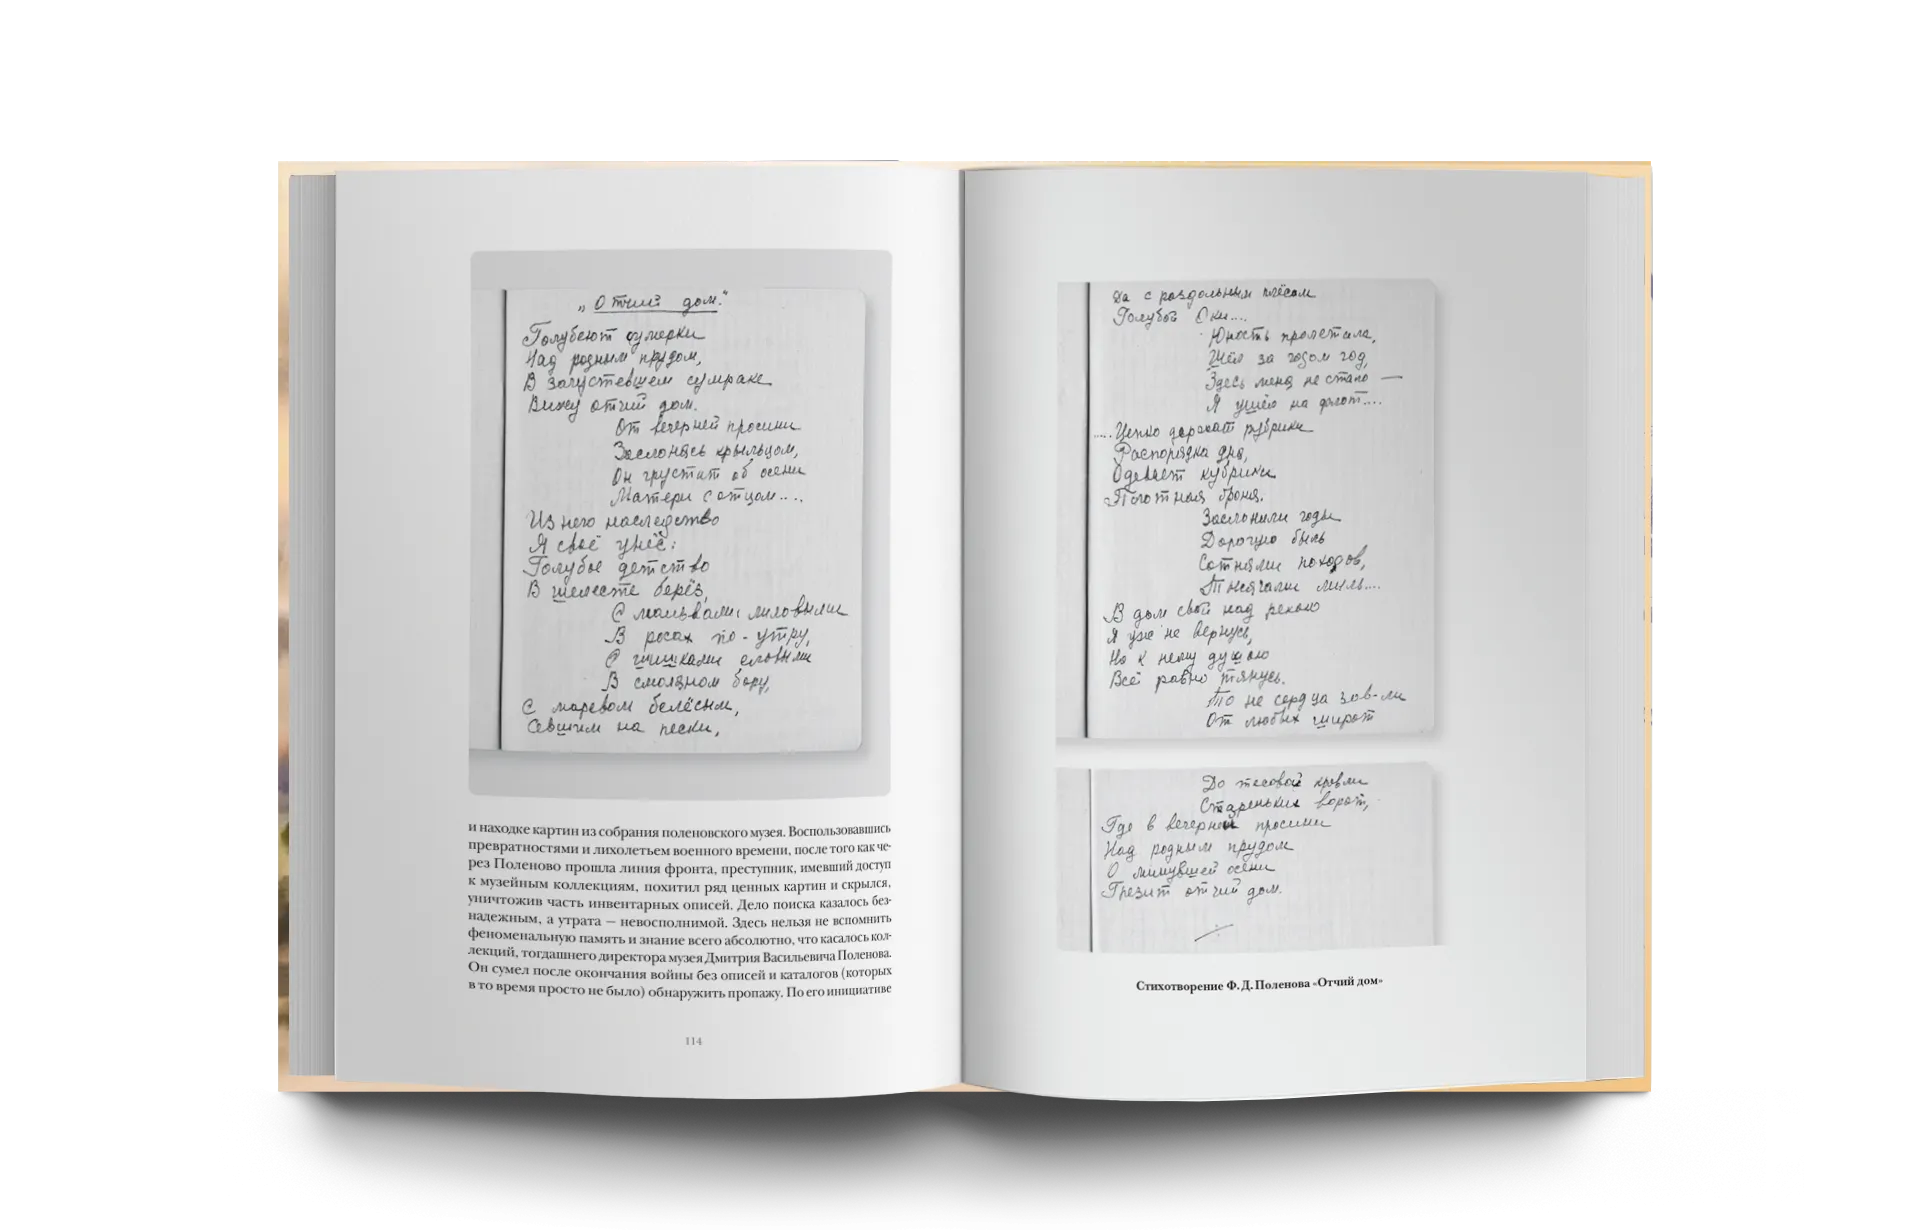 „Отчий дом."
Голубеют сумерки
Над родным прудом,
В загустевшем сумраке
Вижу отчий дом.
От вечерней просини
Заслонясь крыльцом,
Он грустит об осени
Матери с отцом....
Из него наследство
Я своё унёс:
Голубое детство
В шелесте берёз,
С мальвами лиловыми
В росах по-утру,
С шишками еловыми
В смоляном бору,
С маревом белёсым,
Севшим на пески,
и находке картин из собрания поленовского музея. Воспользовавшись
превратностями и лихолетьем военного времени, после того как че-
рез Поленово прошла линия фронта, преступник, имевший доступ
к музейным коллекциям, похитил ряд ценных картин и скрылся,
уничтожив часть инвентарных описей. Дело поиска казалось без-
надежным, а утрата — невосполнимой. Здесь нельзя не вспомнить
феноменальную память и знание всего абсолютно, что касалось кол-
лекций, тогдашнего директора музея Дмитрия Васильевича Поленова.
Он сумел после окончания войны без описей и каталогов (которых
в то время просто не было) обнаружить пропажу. По его инициативе
114
Да с раздольным плёсом
Голубой Оки....
Юность пролетила,
Шёл за годом год,
Здесь меня не стало —
Я ушёл на флот....
.....Цепко держат рубрики
Распорядка дня,
Одевает кубрики
Плотная броня.
Заслонили годы
Дорогую быль
Сотнями походов,
Тысячами миль....
В дом свой над рекою
Я уже не вернусь,
Но к нему душою
Всё равно тянусь.
То не сердца зов-ли
От любых широт
До тесовой кровли
Стареньких ворот,
Где в вечерней просини
Над родным прудом
О минувшей осени
Грезит отчий дом.
Стихотворение Ф. Д. Поленова «Отчий дом»